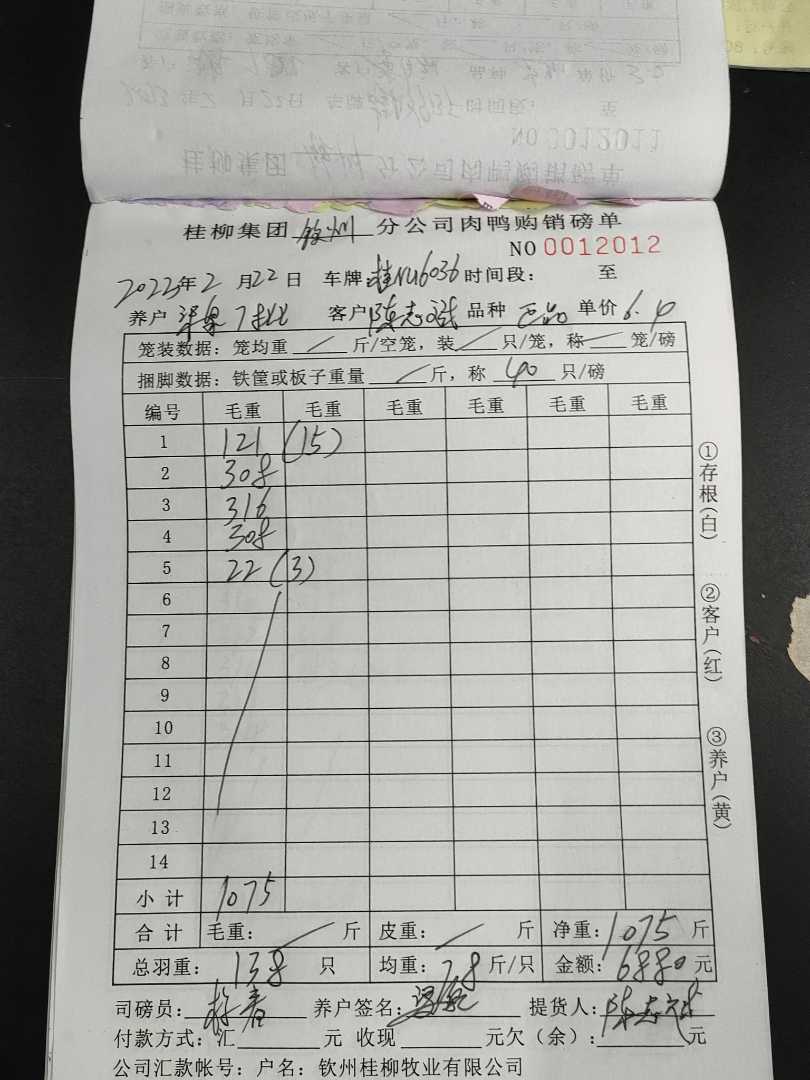 NO 0012011
桂柳集团 钦州 分公司肉鸭购销磅单
NO 0012012
2023年2月22日 车牌:桂NU6036 时间段: 至
养户 客户 陈志斌 品种 单价 6.4
笼装数据:笼均重 / 斤/空笼,装 / 只/笼,称 / 笼/磅
捆脚数据:铁筐或板子重量 / 斤,称 40 只/磅
编号 毛重 毛重 毛重 毛重 毛重 毛重
1 121 (15)
2 308
3 316
4 308
5 22 (3)
6
7
8
9
10
11
12
13
14
小计 1075
合计 毛重: / 斤 皮重: / 斤 净重: 1075 斤
总羽重: 138 只 均重: 7.8 斤/只 金额: 6880 元
司磅员: 养户签名: 提货人: 陈志斌
付款方式:汇 元 收现 元欠(余): 元
公司汇款帐号:户名:钦州桂柳牧业有限公司
①存根(白)
②客户(红)
③养户(黄)